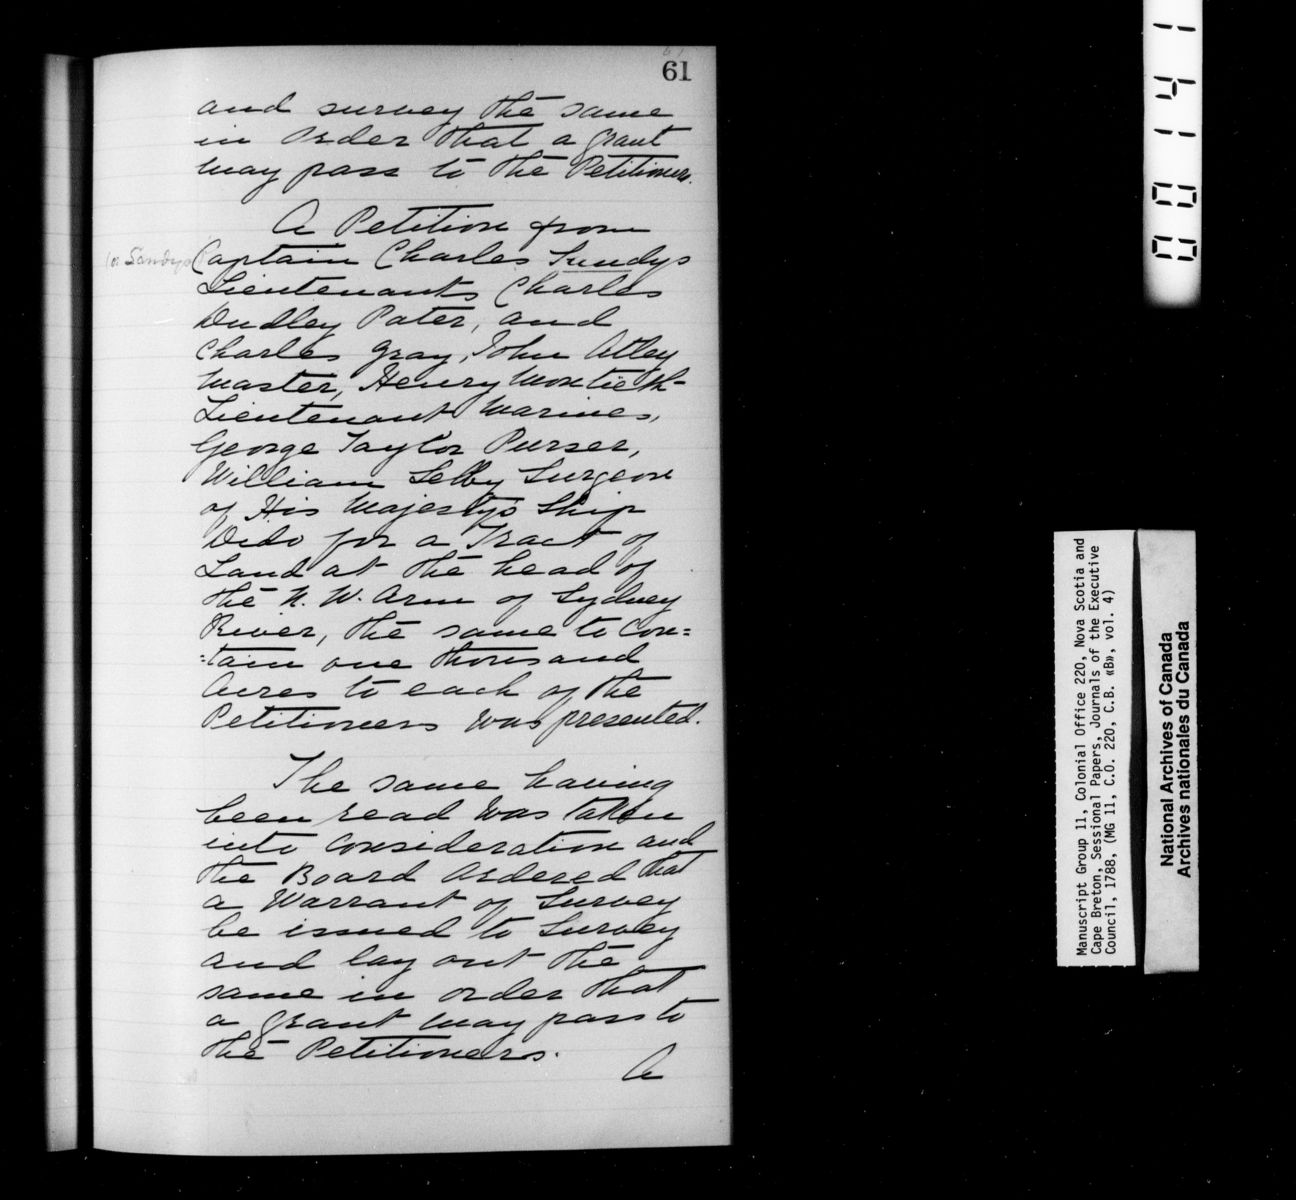 61
and survey the same
in Order that a Grant
may pass to the Petitioners.
A Petition from
(or Sandys)
Captain Charles Sundys
Lieutenants Charles
Dudley Pater, and
Charles Gray, John Atley
Master, Henry Montieth
Lieutenant Marines,
George Taylor Purser,
William Selby Surgeon
of His Majesty's Ship
Dido for a Tract of
Land at the head of
the N. W. Arm of Sydney
River, the same to Con=
=tain one thousand
Acres to each of the
Petitioners was presented.
The same having
been read was taken
into Consideration and
the Board Ordered that
a Warrant of Survey
be issued to Survey
and lay out the
same in order that
a grant may pass to
the Petitioners.
A
00141
Manuscript Group 11, Colonial Office 220, Nova Scotia and
Cape Breton, Sessional Papers, Journals of the Executive
Council, 1788, (MG 11, C.O. 220, C.B. «B», vol. 4)
National Archives of Canada
Archives nationales du Canada